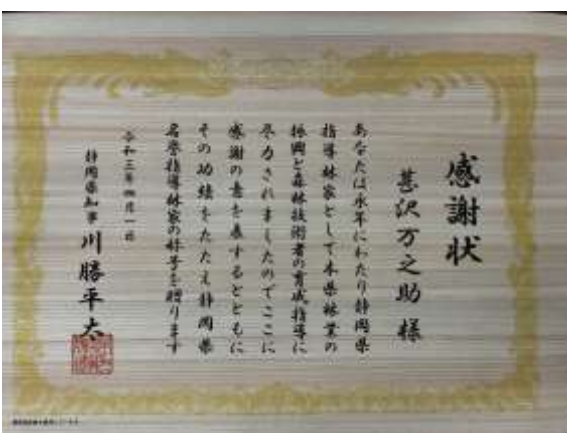 感謝状
甚沢万之助 様
あなたは永年にわたり静岡県
指導林家として本県林業の
振興と森林技術者の育成指導に
尽力されましたのでここに
感謝の意を表するとともに
その功績をたたえ静岡県
名誉指導林家の称号を贈ります
令和三年四月一日
静岡県知事 川勝平太